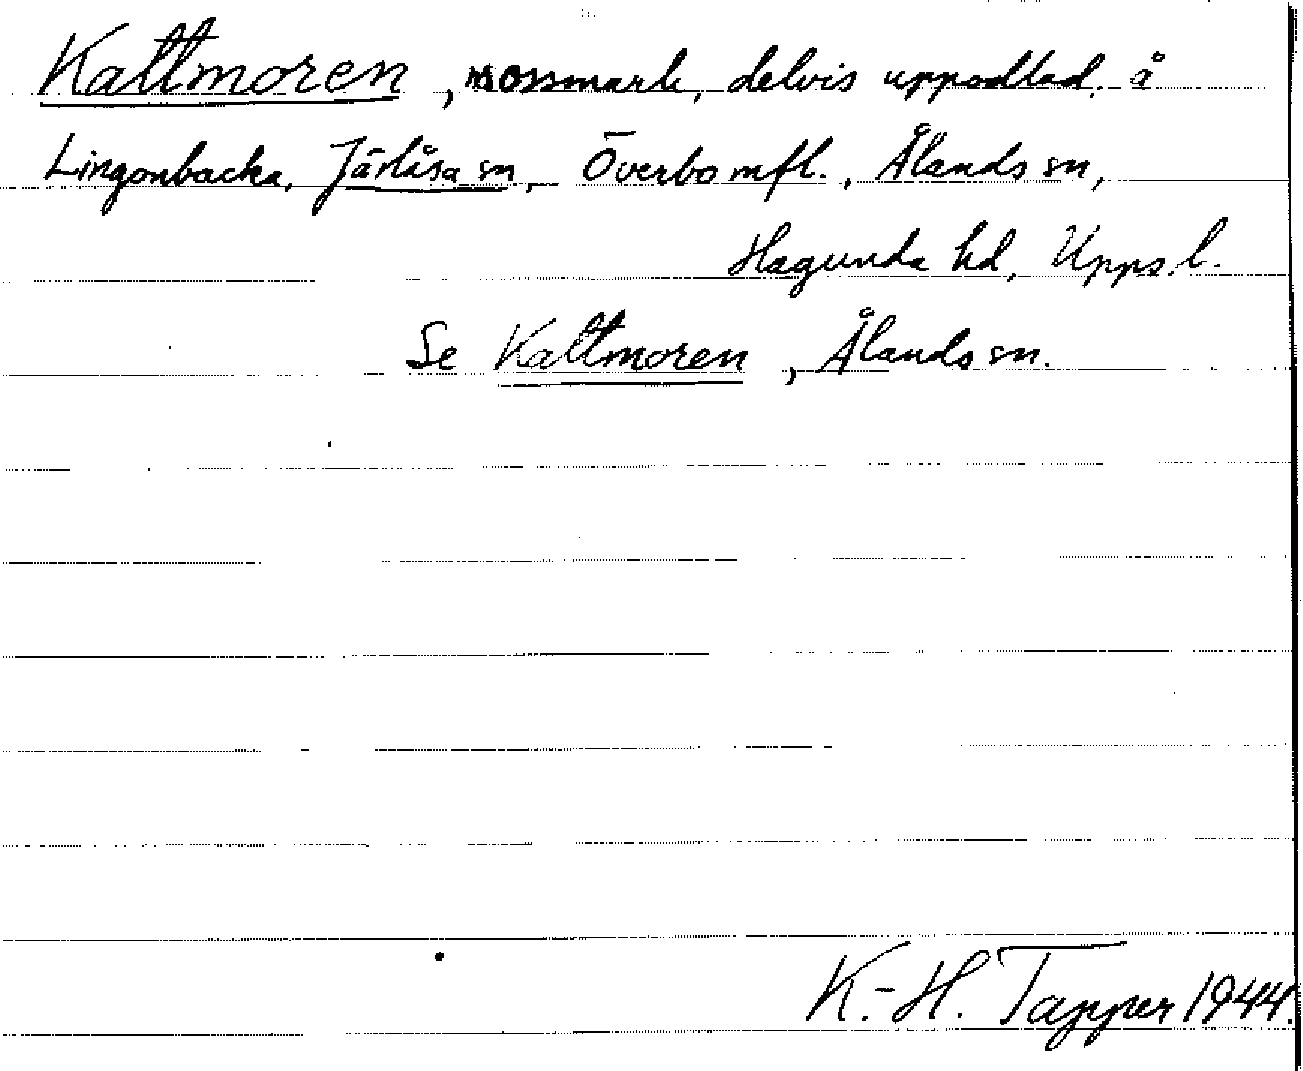 Kattmoren, mossmark, delvis uppodlad, å
Lingonbacka, Järlåsa sn, Överbo mfl., Ålands sn,
Hagunda hd, Upps. l.
Se Kattmoren, Ålands sn.
K.-H. Tapper 1944.